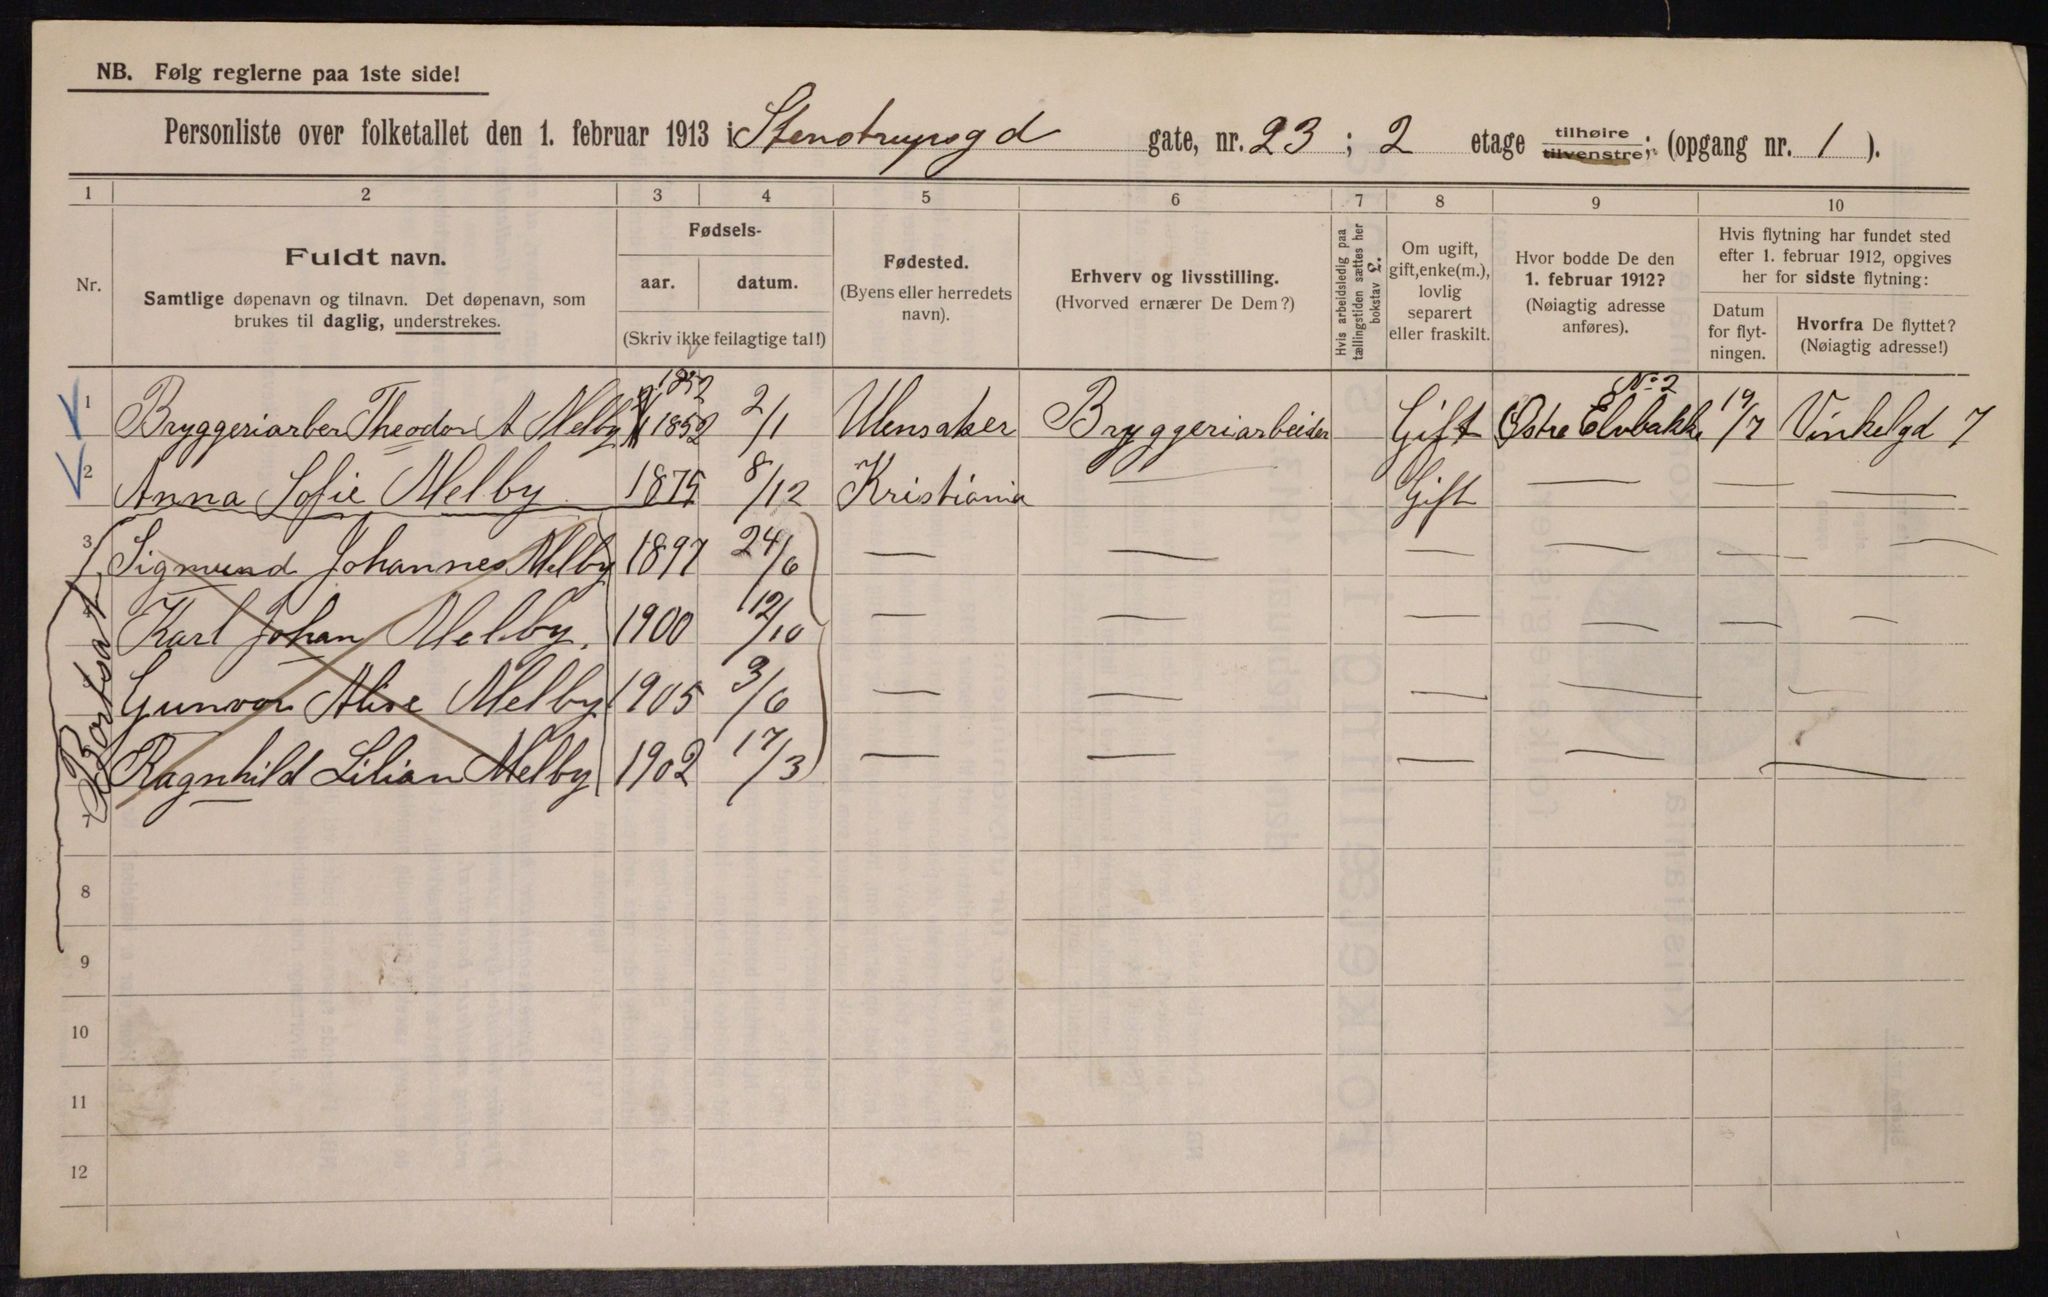 NB. Følg reglerne paa 1ste side!
Personliste over folketallet den 1. februar 1913 i Stenstrupsgd gate, nr. 23 ; 2 etage tilhøire tilvenstre ; (opgang nr. 1 ).
1 2 3 4 5 6 7 8 9 10
Nr.
Fuldt navn.
Samtlige døpenavn og tilnavn. Det døpenavn, som
brukes til daglig, understrekes.
Fødsels-
aar. datum.
(Skriv ikke feilagtige tal!)
Fødested.
(Byens eller herredets
navn).
Erhverv og livsstilling.
(Hvorved ernærer De Dem?)
Hvis arbeidsledig paa
tællingstiden sættes her
bokstav l.
Om ugift,
gift, enke(m.),
lovlig
separert
eller fraskilt.
Hvor bodde De den
1. februar 1912?
(Nøiagtig adresse
anføres).
Hvis flytning har fundet sted
efter 1. februar 1912, opgives
her for sidste flytning:
Datum
for flyt-
ningen.
Hvorfra De flyttet?
(Nøiagtig adresse!)
1852 No 2
1 Bryggeriarber Theodor A Melby 1852 2/1 Ulensaker Bryggeriarbeider Gift Østre Elvbakke 19/7 Vinkelgd 7
2 Anna Sofie Melby 1875 8/12 Kristiania — Gift — — —
3 Sigmund Johannes Melby 1897 24/6 — — — — — —
Karl Johan Melby. 1900 12/10 — — — — — —
Gunvor Alise Melby 1905 3/6 — — — — —
Ragnhild Lilian Melby 1902 17/3 — — — — —
Bortsat
8
9
10
11
12